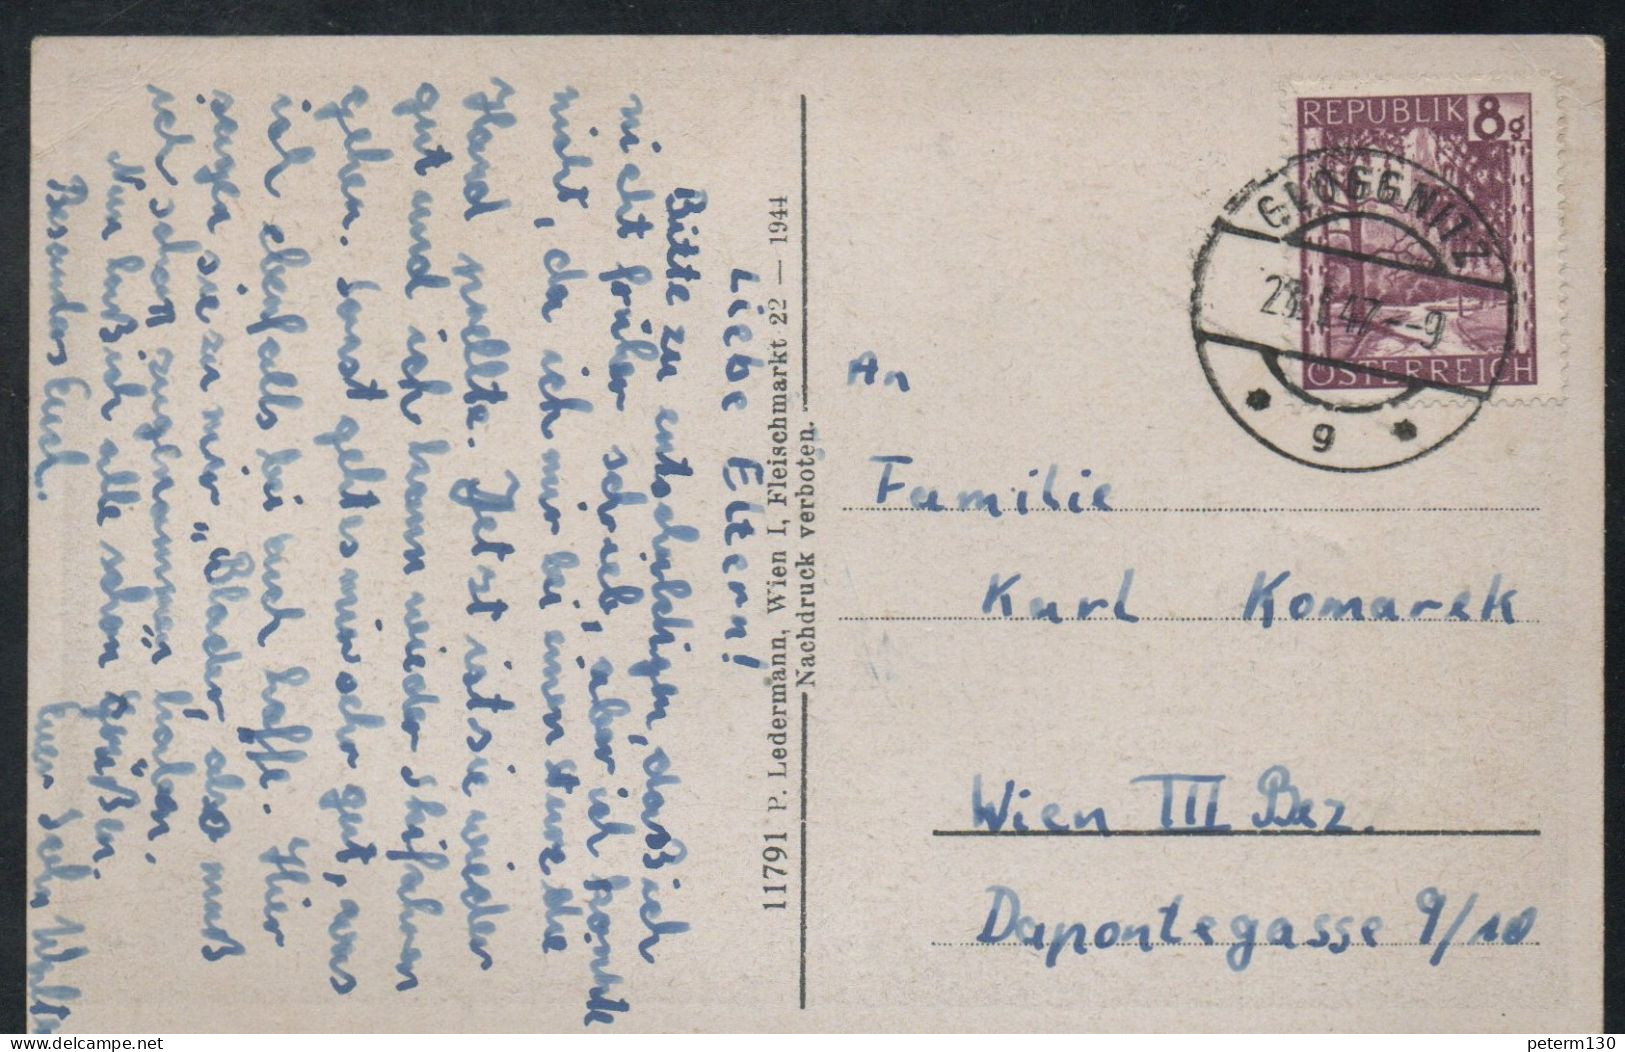 Liebe Eltern!
Bitte zu entschuldigen, daß ich
nicht früher schrieb, aber ich konnte
nicht, da ich mir bei einem Sturz die
Hand prellte. Jetzt ist sie wieder
gut und ich kann wieder skifahren
gehen. Sonst geht es mir sehr gut, was
ich ebenfalls bei euch hoffe. Hier
sagen sie zu mir „Blader“, also muß
ich schon „zugenommen“ haben.
Nun laß ich alle schön grüßen.
Besonders Euch.
Euer
11791 P. Ledermann, Wien I, Fleischmarkt 22 — 1944
Nachdruck verboten.
REPUBLIK 8g
ÖSTERREICH
GLOGGNITZ
47 --9
g
An
Familie
Karl Komarek
Wien III Bez.
Dapontegasse 9/10
delcampe.net
peterm130